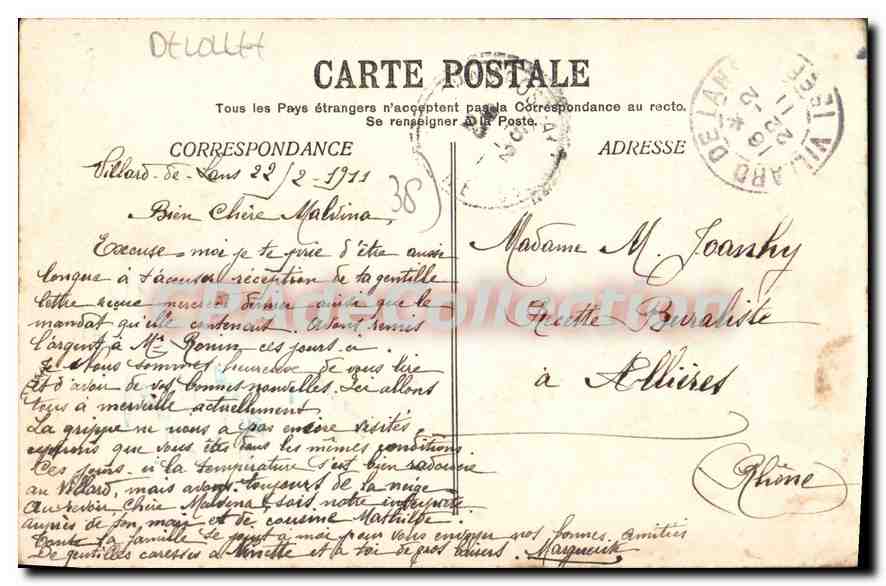 DELOLLE
CARTE POSTALE
Tous les Pays étrangers n'acceptent pas la Correspondance au recto.
Se renseigner à la Poste.
CORRESPONDANCE
ADRESSE
VILLARD DE LANS
ISERE
Villard-de-Lans 22/2-1911
38
Bien Chère Maldina,
Excuse-moi je te prie d'être aussi
longue à t'accuser réception de ta gentille
lettre reçue mercredi dernier ainsi que le
mandat qu'elle contenait. Avons remis
l'argent à Mr ces jours-ci.
Nous sommes heureuse de vous lire
et d'avoir de vos bonnes nouvelles. Ici allons
tous à merveille actuellement
La grippe ne nous a pas encore visités
que vous êtes dans les mêmes conditions.
Ces jours-ci la température s'est bien radoucie
au Villard, mais avons toujours de la neige
Au revoir, chère Maldina, sois notre interprète
auprès de ton mari et de cousine Mathilde.
Toute la famille se joint à moi pour vous envoyer nos bonnes amitiés
De gentilles caresses à Ninette et à toi de gros baisers. Marguerite
Madame M. Joanny
Recette Buraliste
à Allières
(Rhône)
PhileCollection